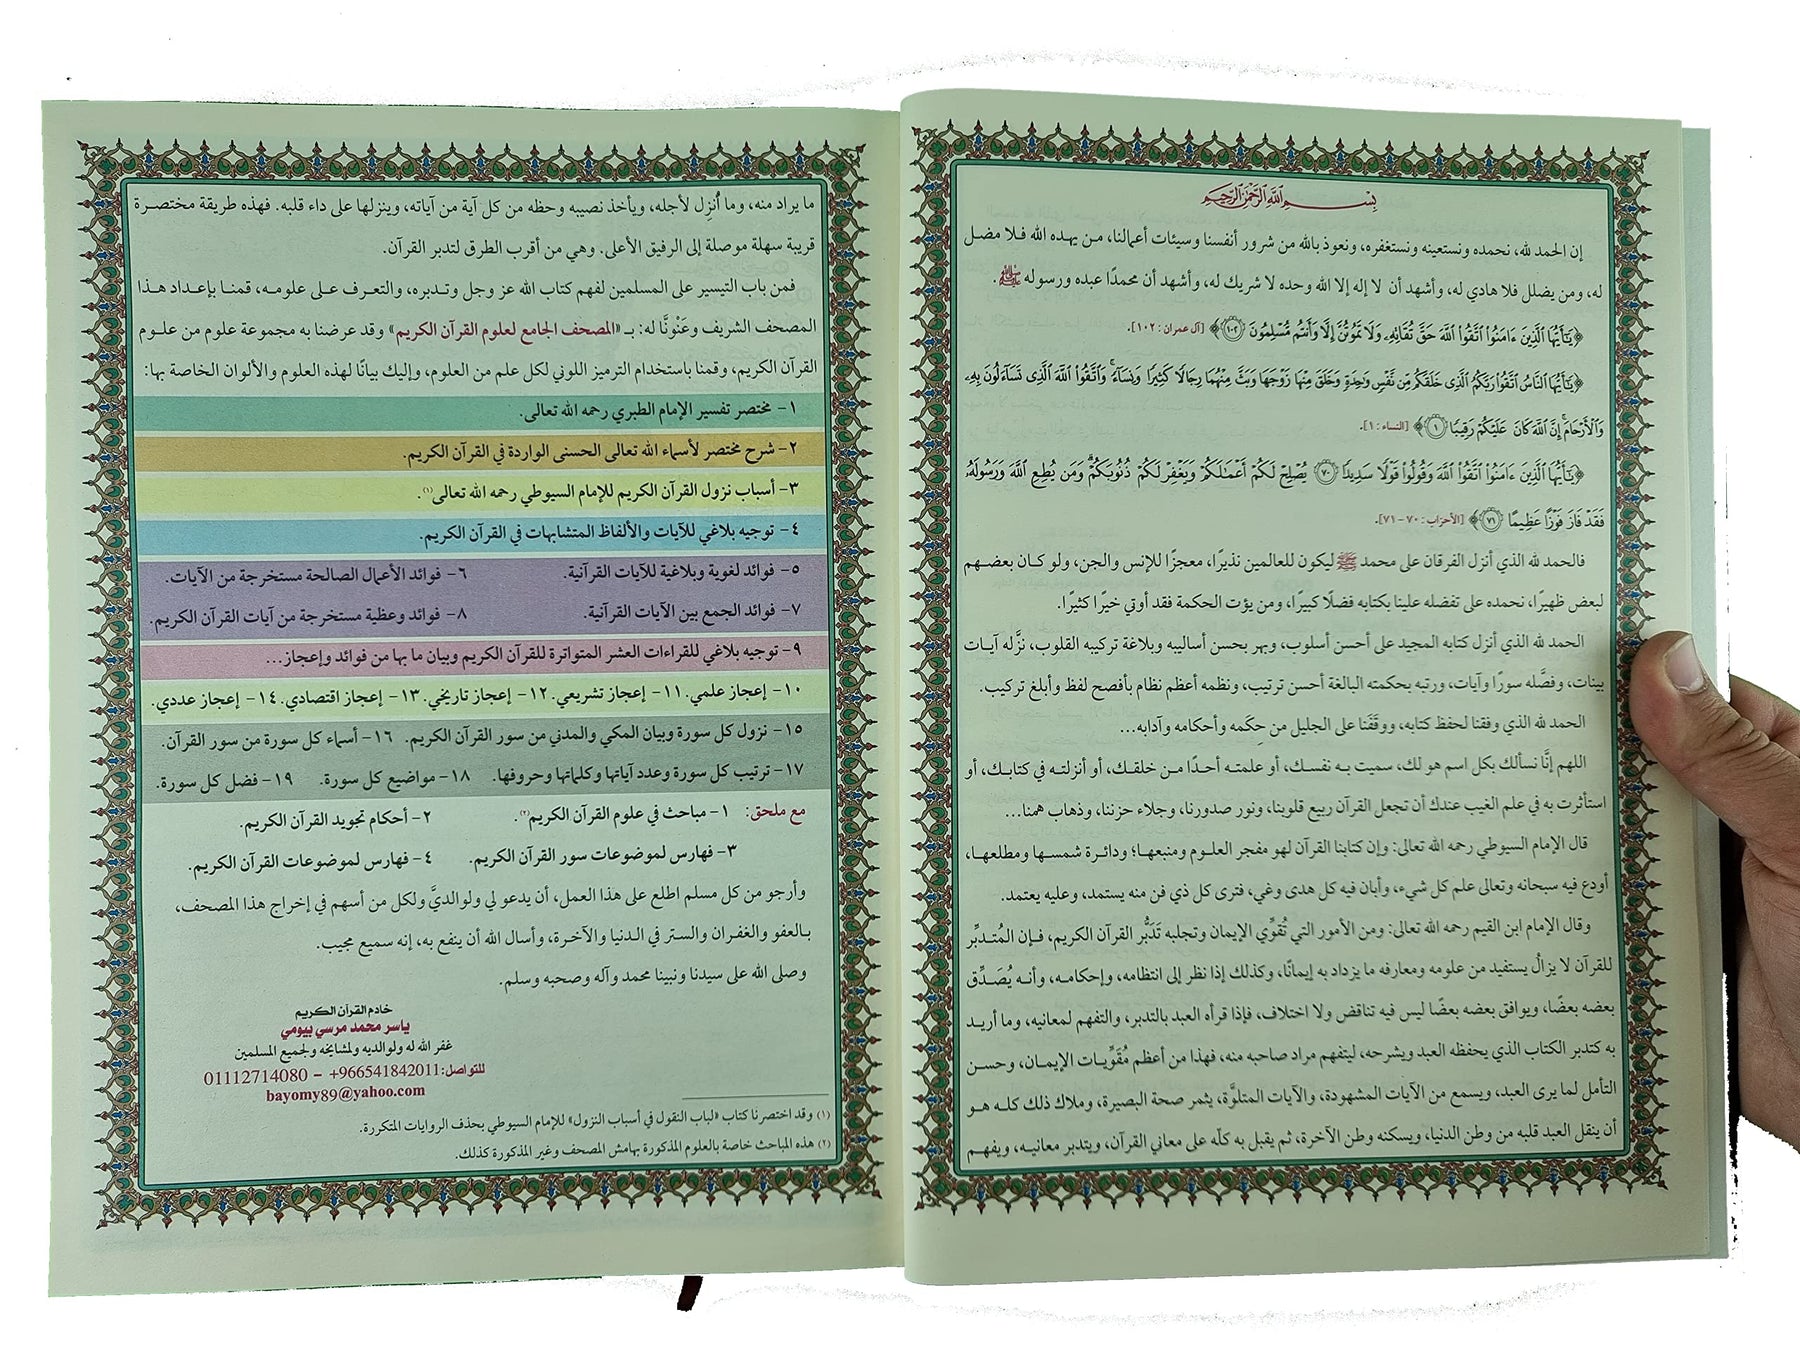 بسم الله الرحمن الرحيم
إن الحمد لله، نحمده ونستعينه ونستغفره، ونعوذ بالله من شرور أنفسنا وسيئات أعمالنا، من يهده الله فلا مضل
له، ومن يضلل فلا هادي له، وأشهد أن لا إله إلا الله وحده لا شريك له، وأشهد أن محمدًا عبده ورسوله ﷺ.
﴿يَٰٓأَيُّهَا ٱلَّذِينَ ءَامَنُوا۟ ٱتَّقُوا۟ ٱللَّهَ حَقَّ تُقَاتِهِۦ وَلَا تَمُوتُنَّ إِلَّا وَأَنتُم مُّسْلِمُونَ ١٠٢﴾ [آل عمران : ١٠٢].
﴿يَٰٓأَيُّهَا ٱلنَّاسُ ٱتَّقُوا۟ رَبَّكُمُ ٱلَّذِى خَلَقَكُم مِّن نَّفْسٍ وَٰحِدَةٍ وَخَلَقَ مِنْهَا زَوْجَهَا وَبَثَّ مِنْهُمَا رِجَالًا كَثِيرًا وَنِسَآءً ۚ وَٱتَّقُوا۟ ٱللَّهَ ٱلَّذِى تَسَآءَلُونَ بِهِۦ
وَٱلْأَرْحَامَ ۚ إِنَّ ٱللَّهَ كَانَ عَلَيْكُمْ رَقِيبًا ١﴾ [النساء : ١].
﴿يَٰٓأَيُّهَا ٱلَّذِينَ ءَامَنُوا۟ ٱتَّقُوا۟ ٱللَّهَ وَقُولُوا۟ قَوْلًا سَدِيدًا ٧٠ يُصْلِحْ لَكُمْ أَعْمَٰلَكُمْ وَيَغْفِرْ لَكُمْ ذُنُوبَكُمْ ۗ وَمَن يُطِعِ ٱللَّهَ وَرَسُولَهُۥ
فَقَدْ فَازَ فَوْزًا عَظِيمًا ٧١﴾ [الأحزاب : ٧٠-٧١].
فالحمد لله الذي أنزل الفرقان على محمد ﷺ ليكون للعالمين نذيرًا، معجزًا للإنس والجن، ولو كان بعضهم
لبعض ظهيرًا، نحمده على تفضله علينا بكتابه فضلًا كبيرًا، ومن يؤت الحكمة فقد أوتي خيرًا كثيرًا.
الحمد لله الذي أنزل كتابه المجيد على أحسن أسلوب، وبهر بحسن أساليبه وبلاغة تركيبه القلوب، نزَّله آيات
بينات، وفصَّله سورًا وآيات، ورتبه بحكمته البالغة أحسن ترتيب، ونظمه أعظم نظام بأفصح لفظ وأبلغ تركيب.
الحمد لله الذي وفقنا لحفظ كتابه، ووقَفَنا على الجليل من حِكَمه وأحكامه وآدابه...
اللهم إنَّا نسألك بكل اسم هو لك، سميت به نفسك، أو علمته أحدًا من خلقك، أو أنزلته في كتابك، أو
استأثرت به في علم الغيب عندك أن تجعل القرآن ربيع قلوبنا، ونور صدورنا، وجلاء حزننا، وذهاب همنا...
قال الإمام السيوطي رحمه الله تعالى: وإن كتابنا القرآن لهو مفجر العلوم ومنبعها؛ ودائرة شمسها ومطلعها،
أودع فيه سبحانه وتعالى علم كل شيء، وأبان فيه كل هدى وغي، فترى كل ذي فن منه يستمد، وعليه يعتمد.
وقال الإمام ابن القيم رحمه الله تعالى: ومن الأمور التي تُقوِّي الإيمان وتجلبه تَدَبُّر القرآن الكريم، فإن المُتدبِّر
للقرآن لا يزالُ يستفيد من علومه ومعارفه ما يزداد به إيمانًا، وكذلك إذا نظر إلى انتظامه، وإحكامه، وأنه يُصَدِّق
بعضه بعضًا، ويوافق بعضه بعضًا ليس فيه تناقض ولا اختلاف، فإذا قرأه العبد بالتدبر، والتفهم لمعانيه، وما أريد
به كتدبر الكتاب الذي يحفظه العبد ويشرحه، ليتفهم مراد صاحبه منه، فهذا من أعظم مُقَوِّيات الإيمان، وحسن
التأمل لما يرى العبد، ويسمع من الآيات المشهودة، والآيات المتلوَّة، يثمر صحة البصيرة، وملاك ذلك كله هو
أن ينقل العبد قلبه من وطن الدنيا، ويسكنه وطن الآخرة، ثم يقبل به كلّه على معاني القرآن، ويتدبر معانيه، ويفهم
ما يراد منه، وما أُنزِل لأجله، ويأخذ نصيبه وحظه من كل آية من آياته، وينزلها على داء قلبه. فهذه طريقة مختصرة
قريبة سهلة موصلة إلى الرفيق الأعلى. وهي من أقرب الطرق لتدبر القرآن.
فمن باب التيسير على المسلمين لفهم كتاب الله عز وجل وتدبره، والتعرف على علومه، قمنا بإعداد هذا
المصحف الشريف وعَنْونَّا له: بـ «المصحف الجامع لعلوم القرآن الكريم» وقد عرضنا به مجموعة علوم من علوم
القرآن الكريم، وقمنا باستخدام الترميز اللوني لكل علم من العلوم، وإليك بيانًا لهذه العلوم والألوان الخاصة بها:
١- مختصر تفسير الإمام الطبري رحمه الله تعالى.
٢- شرح مختصر لأسماء الله تعالى الحسنى الواردة في القرآن الكريم.
٣- أسباب نزول القرآن الكريم للإمام السيوطي رحمه الله تعالى(١).
٤- توجيه بلاغي للآيات والألفاظ المتشابهات في القرآن الكريم.
٥- فوائد لغوية وبلاغية للآيات القرآنية. ٦- فوائد الأعمال الصالحة مستخرجة من الآيات.
٧- فوائد الجمع بين الآيات القرآنية. ٨- فوائد وعظية مستخرجة من آيات القرآن الكريم.
٩- توجيه بلاغي للقراءات العشر المتواترة للقرآن الكريم وبيان ما بها من فوائد وإعجاز...
١٠- إعجاز علمي. ١١- إعجاز تشريعي. ١٢- إعجاز تاريخي. ١٣- إعجاز اقتصادي. ١٤- إعجاز عددي.
١٥- نزول كل سورة وبيان المكي والمدني من سور القرآن الكريم. ١٦- أسماء كل سورة من سور القرآن.
١٧- ترتيب كل سورة وعدد آياتها وكلماتها وحروفها. ١٨- مواضيع كل سورة. ١٩- فضل كل سورة.
مع ملحق: ١- مباحث في علوم القرآن الكريم(٢). ٢- أحكام تجويد القرآن الكريم.
٣- فهارس لموضوعات سور القرآن الكريم. ٤- فهارس لموضوعات القرآن الكريم.
وأرجو من كل مسلم اطلع على هذا العمل، أن يدعو لي ولوالديَّ ولكل من أسهم في إخراج هذا المصحف،
بالعفو والغفران والستر في الدنيا والآخرة، وأسال الله أن ينفع به، إنه سميع مجيب.
وصلى الله على سيدنا ونبينا محمد وآله وصحبه وسلم.
خادم القرآن الكريم
ياسر محمد مرسي بيومي
غفر الله له ولوالديه ولمشايخه ولجميع المسلمين
للتواصل: 966541842011+ – 01112714080
bayomy89@yahoo.com
(١) وقد اختصرنا كتاب «لباب النقول في أسباب النزول» للإمام السيوطي بحذف الروايات المتكررة.
(٢) هذه المباحث خاصة بالعلوم المذكورة بهامش المصحف وغير المذكورة كذلك.